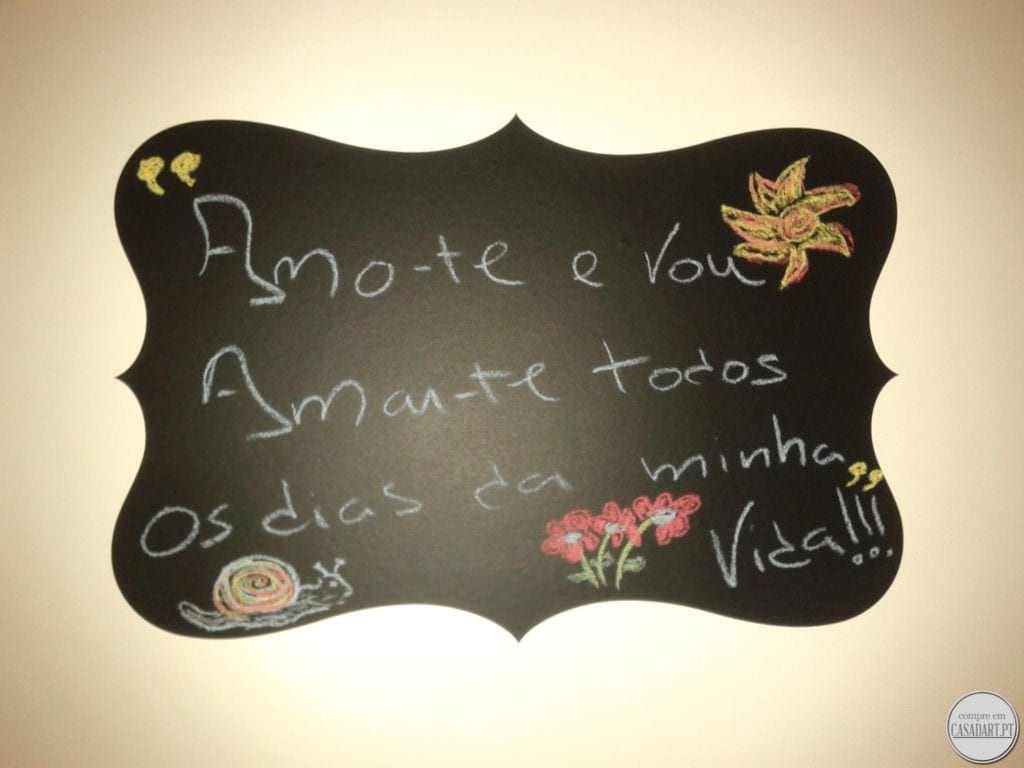 " Amo-te e vou
Amar-te todos
os dias da minha "
Vida!!!
compre em
CASADART.PT